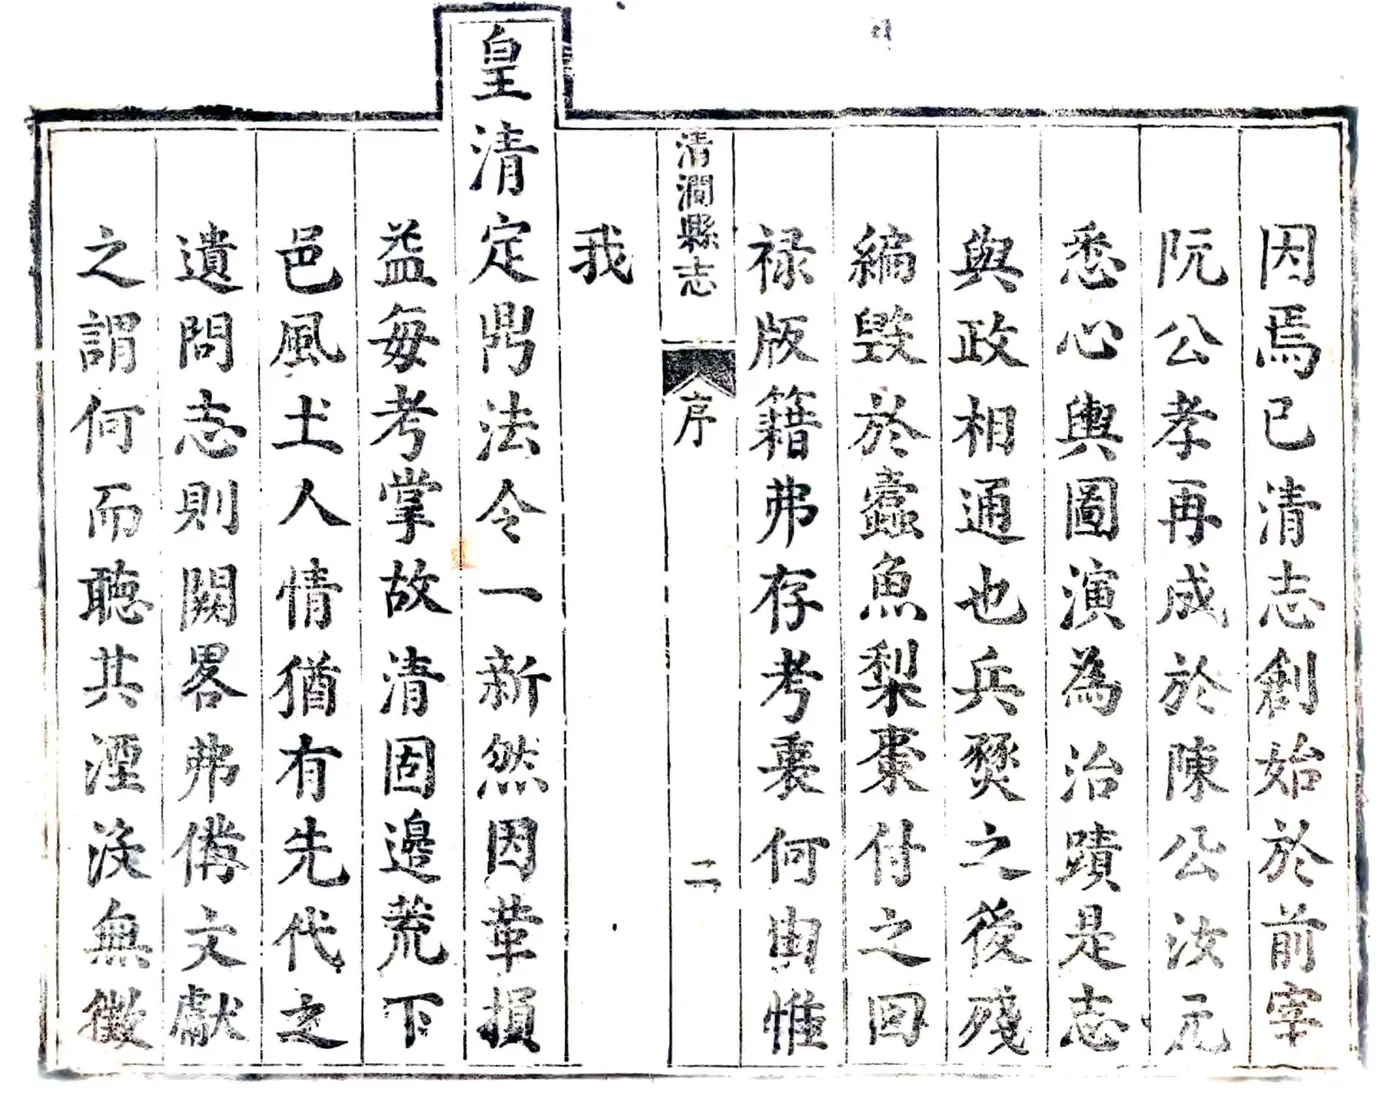 因焉已清志創始於前宰
阮公孝再成於陳公汝元
悉心輿圖演為治蹟是志
與政相通也兵燹之後殘
編毀於蠹魚梨棗付之回
禄版籍弗存考衷何由惟
清澗縣志
序
二
我
皇清定鼎法令一新然因革損
益每考掌故清固邊荒下
邑風土人情猶有先代之
遺問志則闕畧弗備文獻
之謂何而聽其湮没無徵